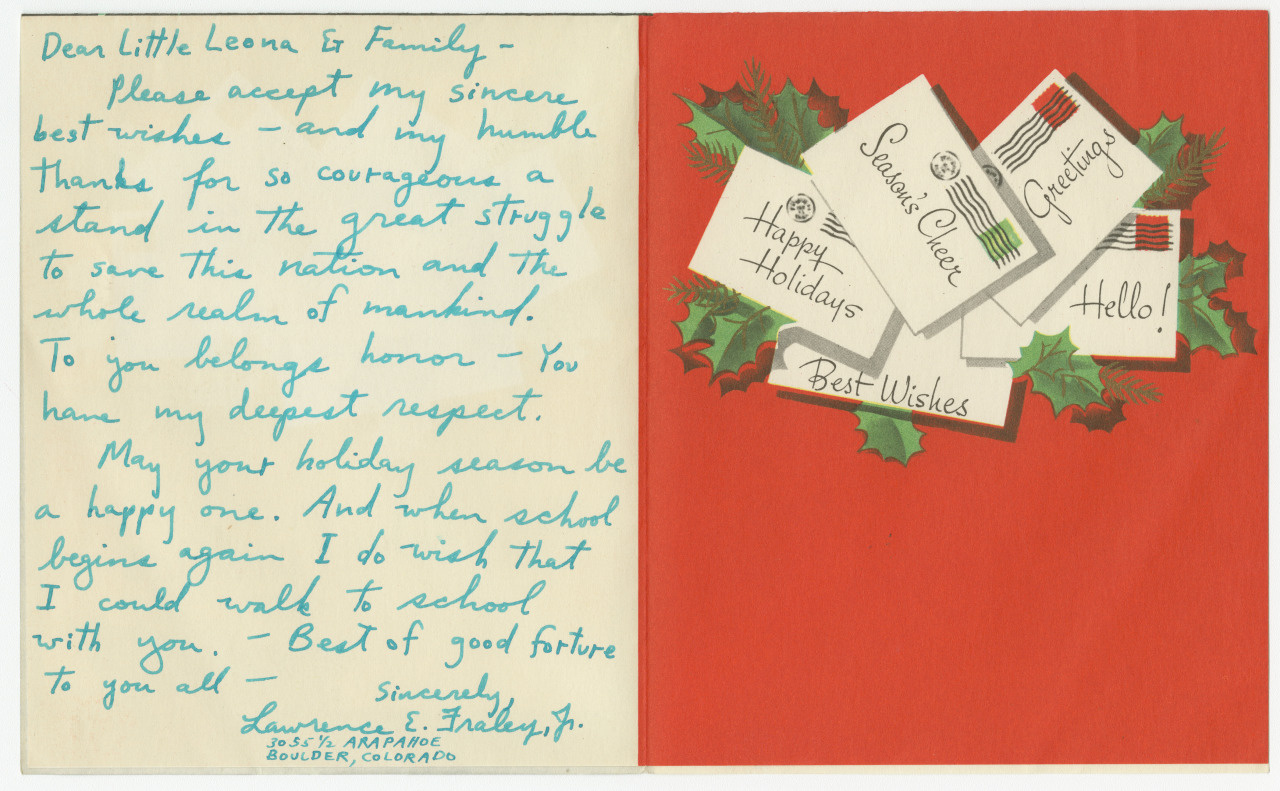 Dear Little Leona & Family -
Please accept my sincere
best wishes - and my humble
thanks for so courageous a
stand in the great struggle
to save this nation and the
whole realm of mankind.
To you belongs honor - You
have my deepest respect.
May your holiday season be
a happy one. And when school
begins again I do wish that
I could walk to school
with you. - Best of good forture
to you all -
Sincerely,
Lawrence E. Fraley, Jr.
3055 1/2 ARAPAHOE
BOULDER, COLORADO
Season's Cheer
Greetings
Happy
Holidays
Hello!
Best Wishes